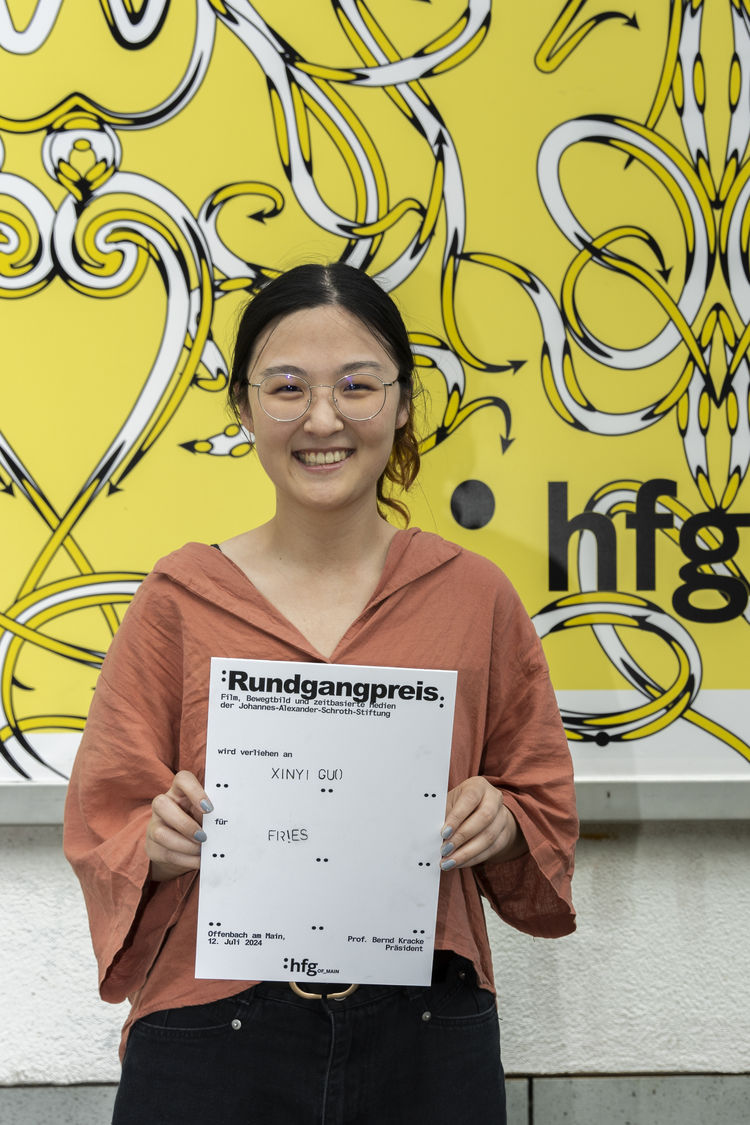 :hfg
:Rundgangpreis:
Film, Bewegtbild und zeitbasierte Medien
der Johannes-Alexander-Schroth-Stiftung
wird verliehen an
XINYI GUO
für
FR!ES
Offenbach am Main,
12. Juli 2024
Prof. Bernd Kracke
Präsident
:hfg OF_MAIN